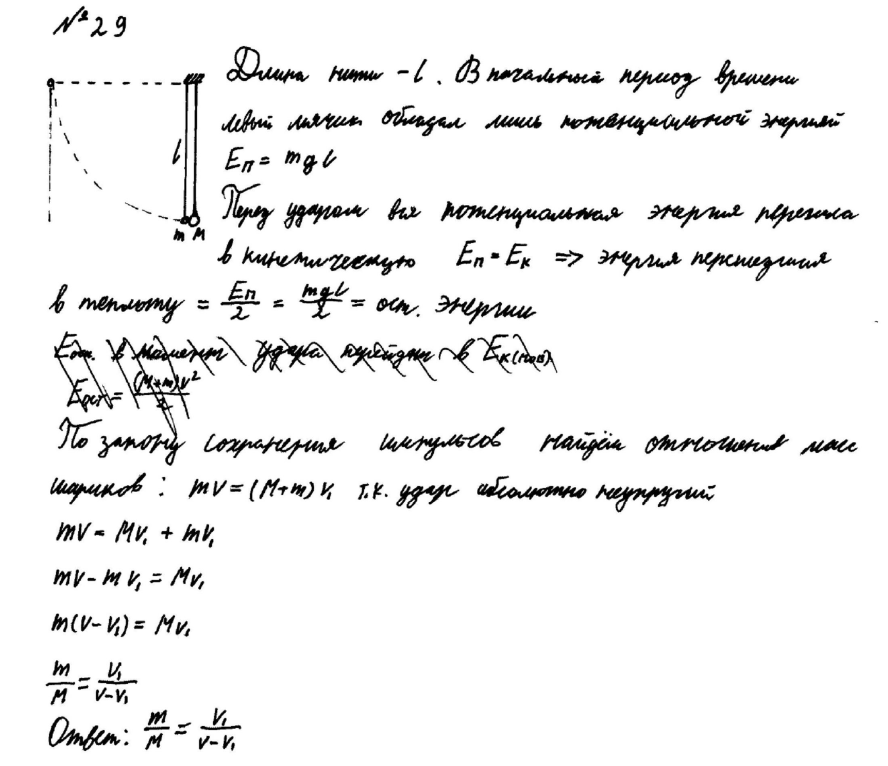 №29
Длина нити - l. В начальный период времени
левый мячик обладал лишь потенциальной энергией
Eп = mgl
l
m M
Перед ударом вся потенциальная энергия перешла
в кинетическую Eп = Eк => энергия перешедшая
в теплоту = Eп/2 = mgl/2 = ост. энергии
Eост. в момент удара перейдёт в Eк(мов)
Eост = (M+m)v²/2
По закону сохранения импульсов найдём отношения масс
шариков: mV = (M+m)V₁ т.к. удар абсолютно неупругий
mV = MV₁ + mV₁
mV - mV₁ = MV₁
m(V-V₁) = MV₁
m/M = V₁/(V-V₁)
Ответ: m/M = V₁/(V-V₁)